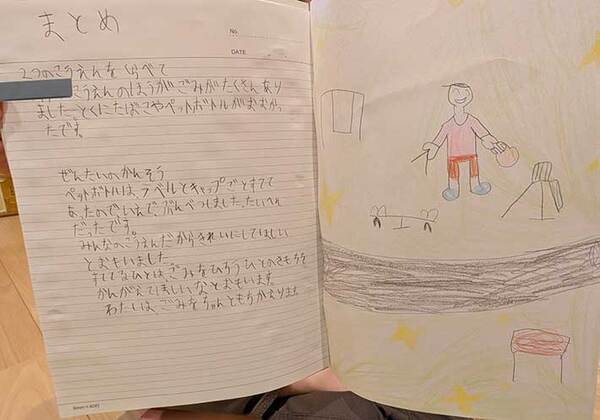 まとめ
No.
DATE
2つのこうえんをくらべて
こうえんのほうがごみがたくさんあり
ました。とくにたばこやペットボトルがおおかっ
たです。
ぜんたいのかんそう
ペットボトルは、ラベルとキャップごとすてて
あったのでいえで、ぶんべつしました。たいへん
だったです。
みんなのこうえんだからきれいにしてほしい
とおもいました。
すてるひとは、ごみをひろうひとのきもちを
かんがえてほしいなとおもいます。
わたしは、ごみをちゃんともちかえります。